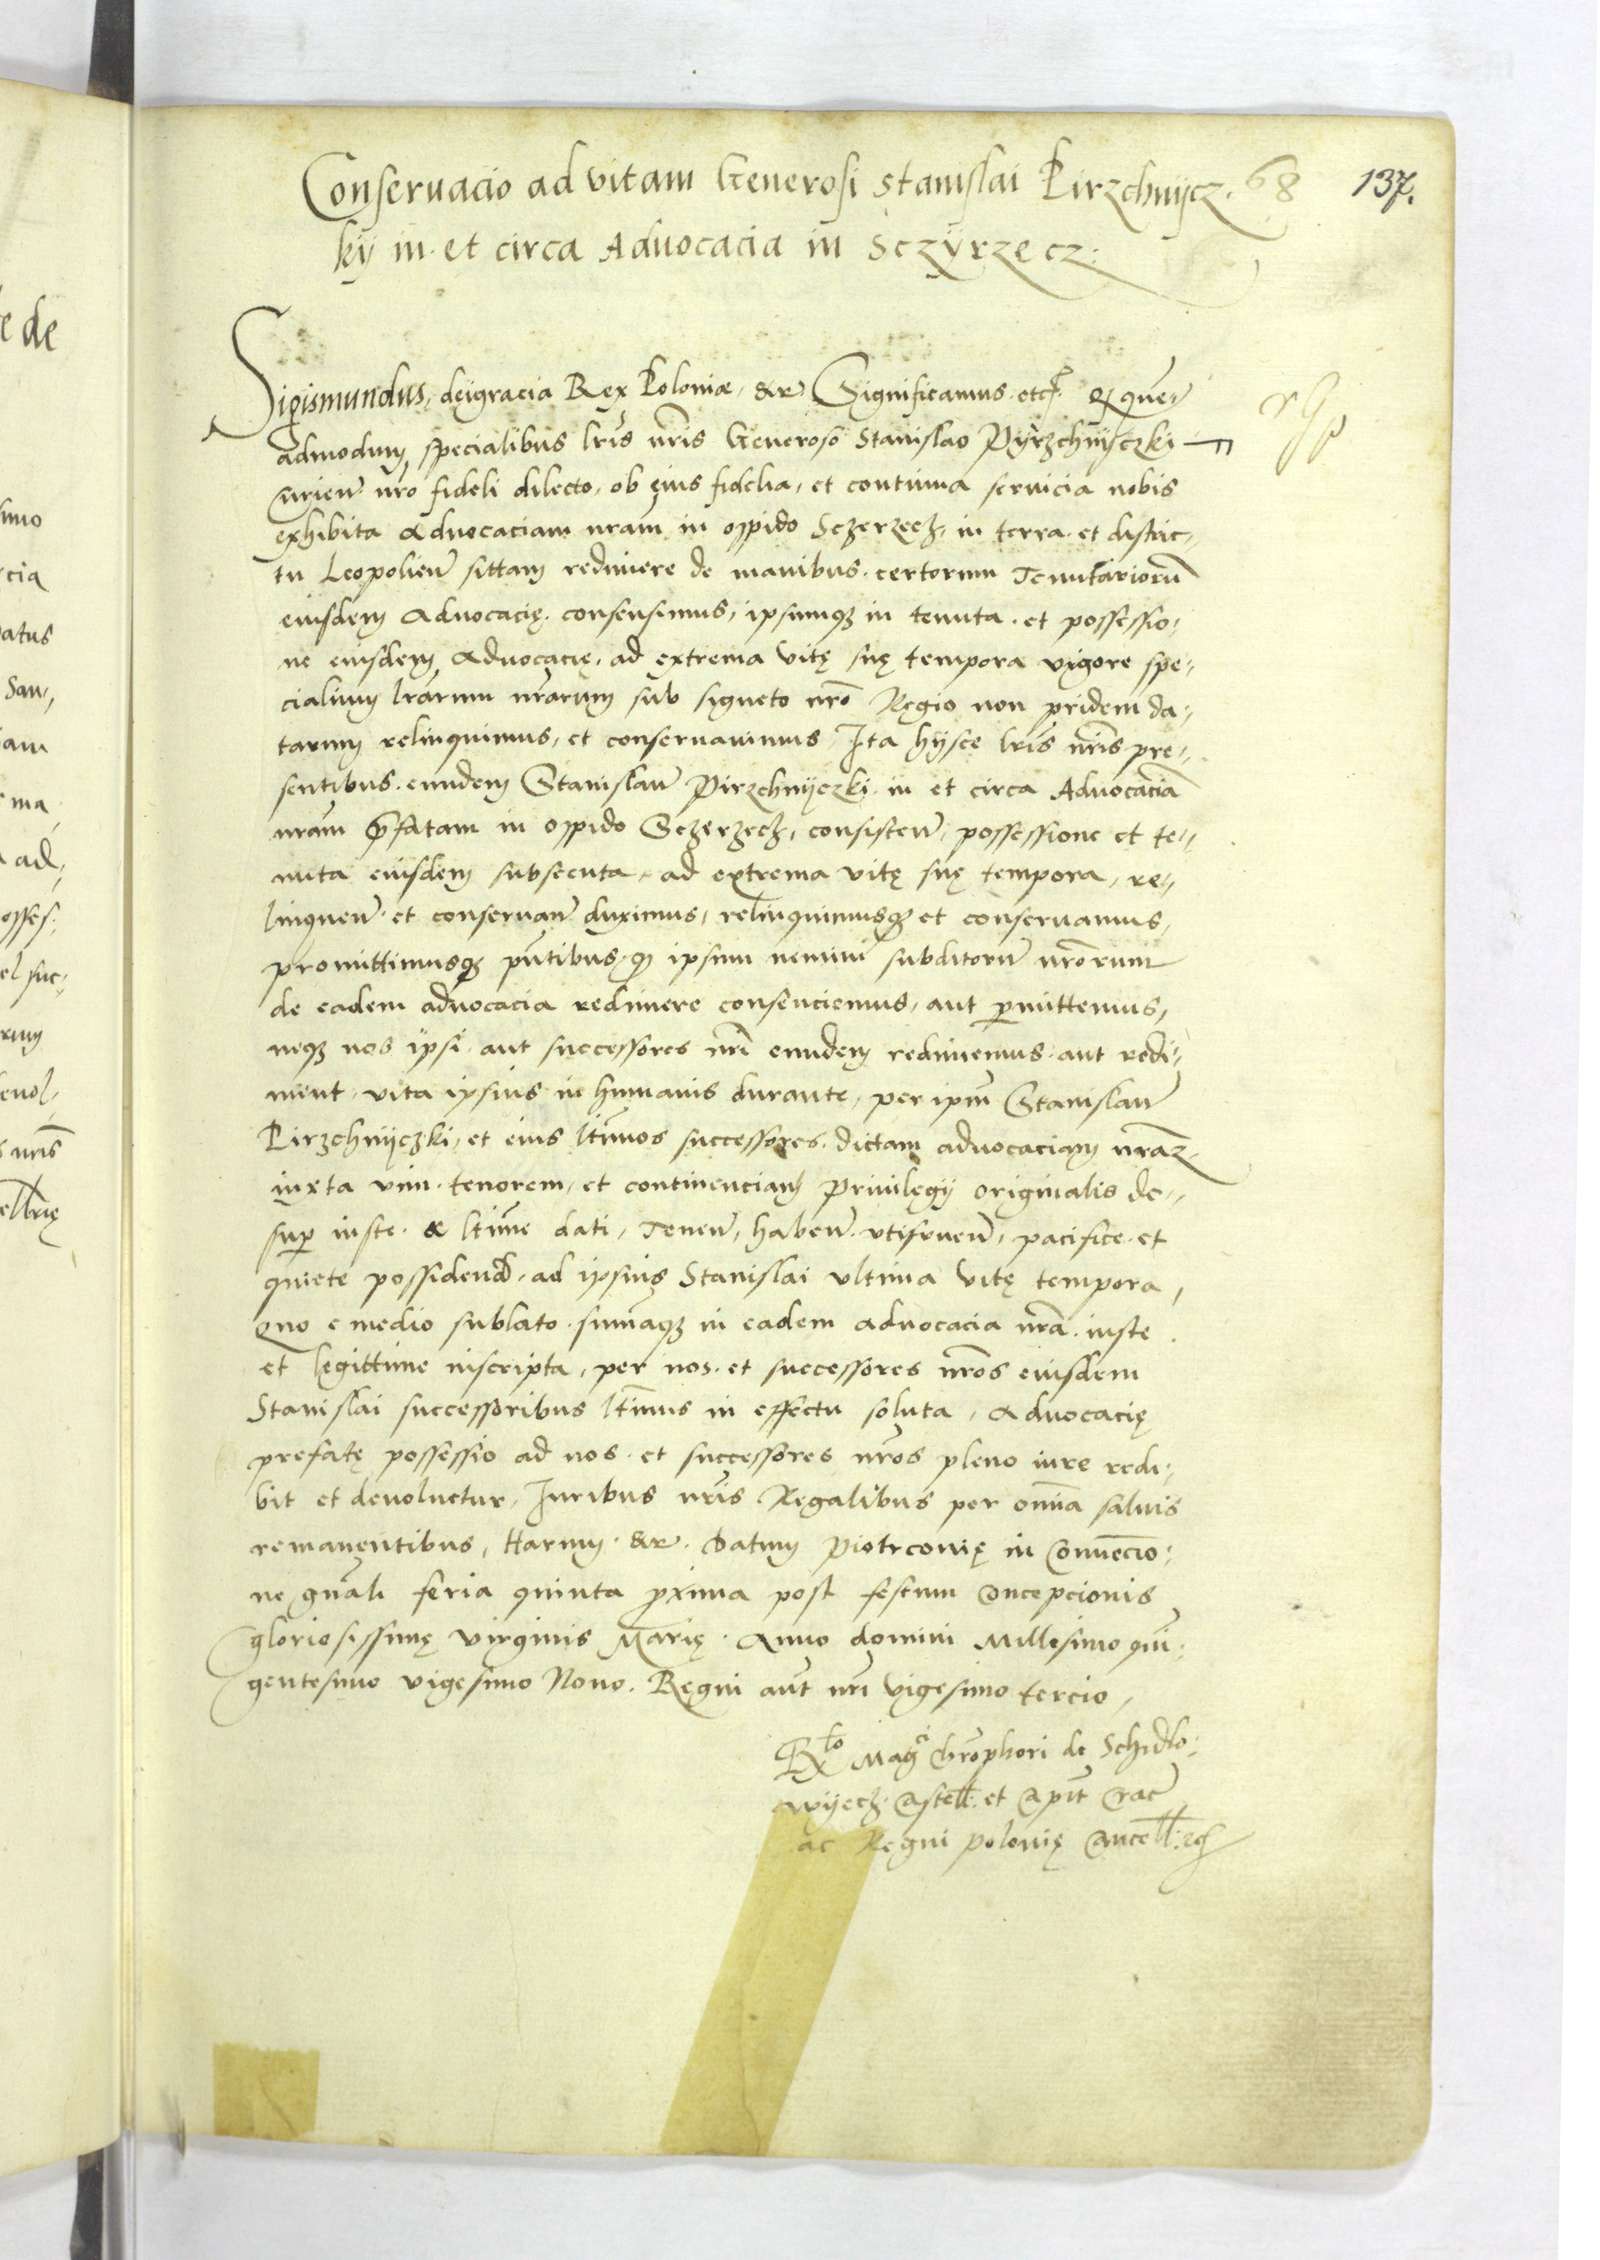 Conseruacio ad vitam Generosi Stanislai Pirzchnijcz- 68 137.
kij in et circa Aduocacia in Sczyrzecz:
Sigismundus, deigracia Rex Poloniæ, &c Significamus etc q quem
admodum specialibus lris nris Generoso Stanislao Pyrzchnijczki
nro fideli dilecto, ob eius fidelia, et continua seruicia nobis
exhibita aduocaciam nram in oppido Sczerzecz, in terra et distric-
tu Leopolien sittam redimere de manibus certorum Tenutariorum
eiusdem aduocacię consensimus, ipsumq in tenuta et possessio:
ne eiusdem aduocacię, ad extrema vitę suę tempora vigore spe:
cialium lrarum nrarum sub signeto nro Regio non pridem da:
tarum relinquimus, et conseruauimus, Ita hijsce lris nris pre:
sentibus eundem Stanislaum Pirzchnijczki in et circa Aduocaciam
nram prefatam in oppido Sczerzecz, consisten, possessione et te:
nuta eiusdem subsecuta, ad extrema vitę suę tempora, re:
linquen et conseruan duximus, relinquimusq et conseruamus,
promittimusq pntibus, q ipsum nemini subditorum nrorum
de eadem aduocacia redimere consenciemus, aut permittemus,
neq nos ipsi aut successores nri eundem redimemus aut redi:
ment, vita ipsius in humanis durante, per ipm Stanislaum
Pirzchnijczki, et eius ltimos successores dictam aduocaciam nram
iuxta vim tenorem, et continenciam Priuilegij originalis de:
super iuste & ltime dati, Tenen, haben vtifruen, pacifice et
quiete possidend, ad ipsius Stanislai vltima vitę tempora,
Quo e medio sublato summaq in eadem aduocacia nra iuste
et legittime inscripta, per nos et successores nros eiusdem
Stanislai successoribus ltimis in effectu soluta, aduocacię
prefatę possessio ad nos et successores nros pleno iure redi:
bit et deuoluetur, Iuribus nris Regalibus per omnia saluis
remanentibus, Harum &c. Datum Piotrcouię in Conuencio:
ne gnali feria quinta proxima post festum Concepcionis
gloriosissimę virginis Marię Anno domini Millesimo quin:
gentesimo vigesimo Nono. Regni aut nri vigesimo tercio,
Rlo Magci Chrophori de Schidlo:
wijecz Castell: et Capit Crac
ac Regni polonię Cancell: &c